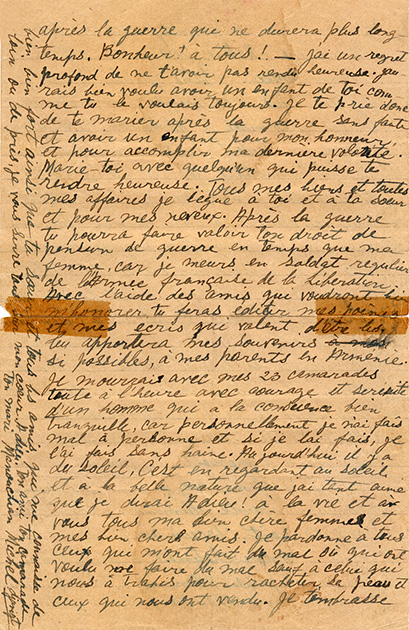 après la guerre qui ne durera plus long
temps. Bonheur! à tous! — J'ai un regret
profond de ne t'avoir pas rendu heureuse. J'au
rais bien voulu avoir un enfant de toi com
me tu le voulais toujours. Je te prie donc
de te marier après la guerre sans faute
et avoir un enfant pour mon honneur,
et pour accomplir ma dernière volonté.
Marie-toi avec quelqu'un qui puisse te
rendre heureuse. Tous mes biens et toutes
mes affaires je lègue à toi et à ta sœur
et pour mes neveux. Après la guerre
tu pourra faire valoir ton droit de
pension de guerre en temps que ma
femme, car je meurs en soldat regulier
de l'Armée française de la Libération.
Avec l'aide des amis qui voudront
m'honorer tu feras editer mes poèmes
et mes ecris qui valent d'être lus.
tu apportera mes souvenirs
si possibles, à mes parents en Arménie.
Je mourrais avec mes 23 camarades
toute à l'heure avec courage et serénité
d'un homme qui a la conscience bien
tranquille, car personnellement je n'ai fais
mal à personne et si je l'ai fais, je
l'ai fais sans haine. Aujourd'hui il y a
du soleil. C'est en regardant au soleil
et à la belle nature que j'ai tant aimé
que je dirai Adieu! à la vie et à
vous tous ma bien chère femme et
mes bien chers amis. Je pardonne à tous
ceux qui m'ont fait du mal où qui ont
voulu me faire du mal sauf à celui qui
nous à trahis pour racheter sa peau et
ceux qui nous ont vendu. Je t'embrasse
bien bien fort ainsi que ta sœur et tous les amis qui me connaisse de
loin ou de près je vous serre tous sur mon cœur. Adieu. Ton ami Ton camarade
Ton mari Manouchian Michel